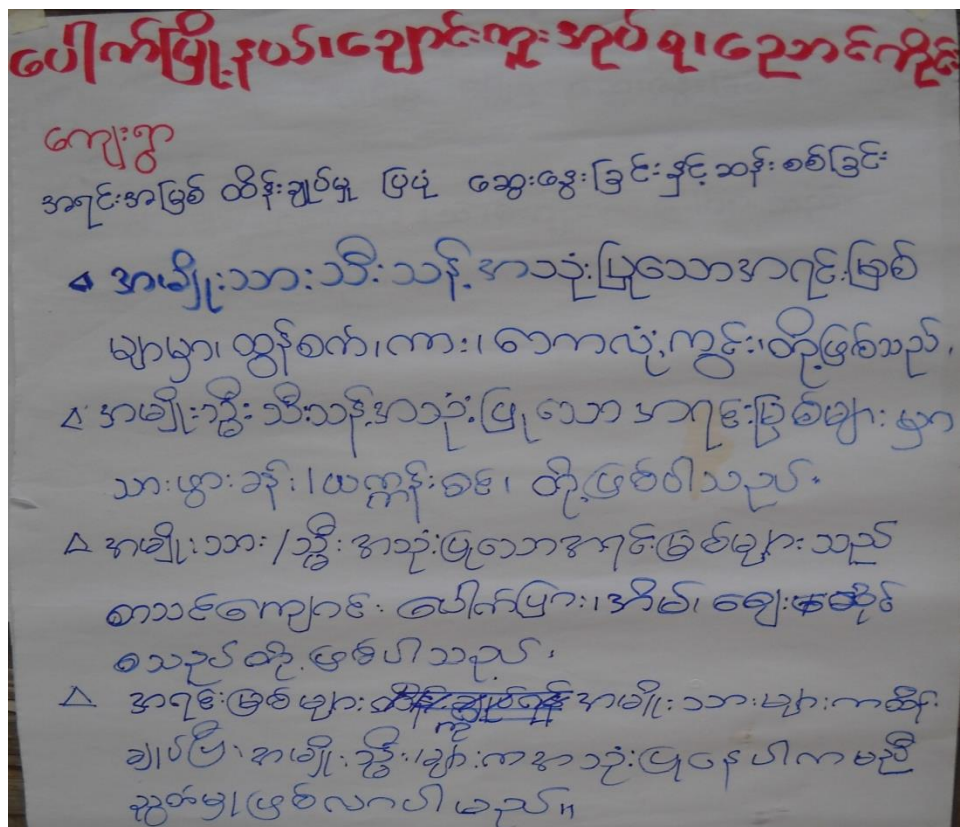 ပေါက်မြို့နယ်၊ချောင်းကူးအုပ်စု၊ညောင်ကိုင်း
ကျေးရွာ
အရင်းအမြစ် ထိန်းချုပ်မှု ပြပုံ ဆွေးနွေးခြင်းနှင့်ဆန်းစစ်ခြင်း
အမျိုးသားသီးသန့်အသုံးပြုသောအရင်းမြစ်
များမှာ၊ ထွန်စက်၊ကား၊ ဘောလုံးကွင်း၊တို့ဖြစ်သည်၊
△ အမျိုးသ္မီးသီးသန့်အသုံးပြုသော အရင်းမြစ်များမှာ
သားဖွားခန်း၊ယက္ကန်းစင်၊ တို့ဖြစ်ပါသည်။
△ အမျိုးသား/သ္မီး အသုံးပြုသောအရင်းမြစ်များသည်
စာသင်ကျောင်း ပေါက်ပြား၊အိမ်၊ ဈေးဆိုင်
စသည်တို့ဖြစ်ပါသည်၊
△ အရင်းမြစ်များ အမျိုးသားများကထိန်း
ချုပ်ပြီး အမျိုးသ္မီးများကအသုံးပြုနေပါကမညီ
ညွတ်မှုဖြစ်လာပါမည်။